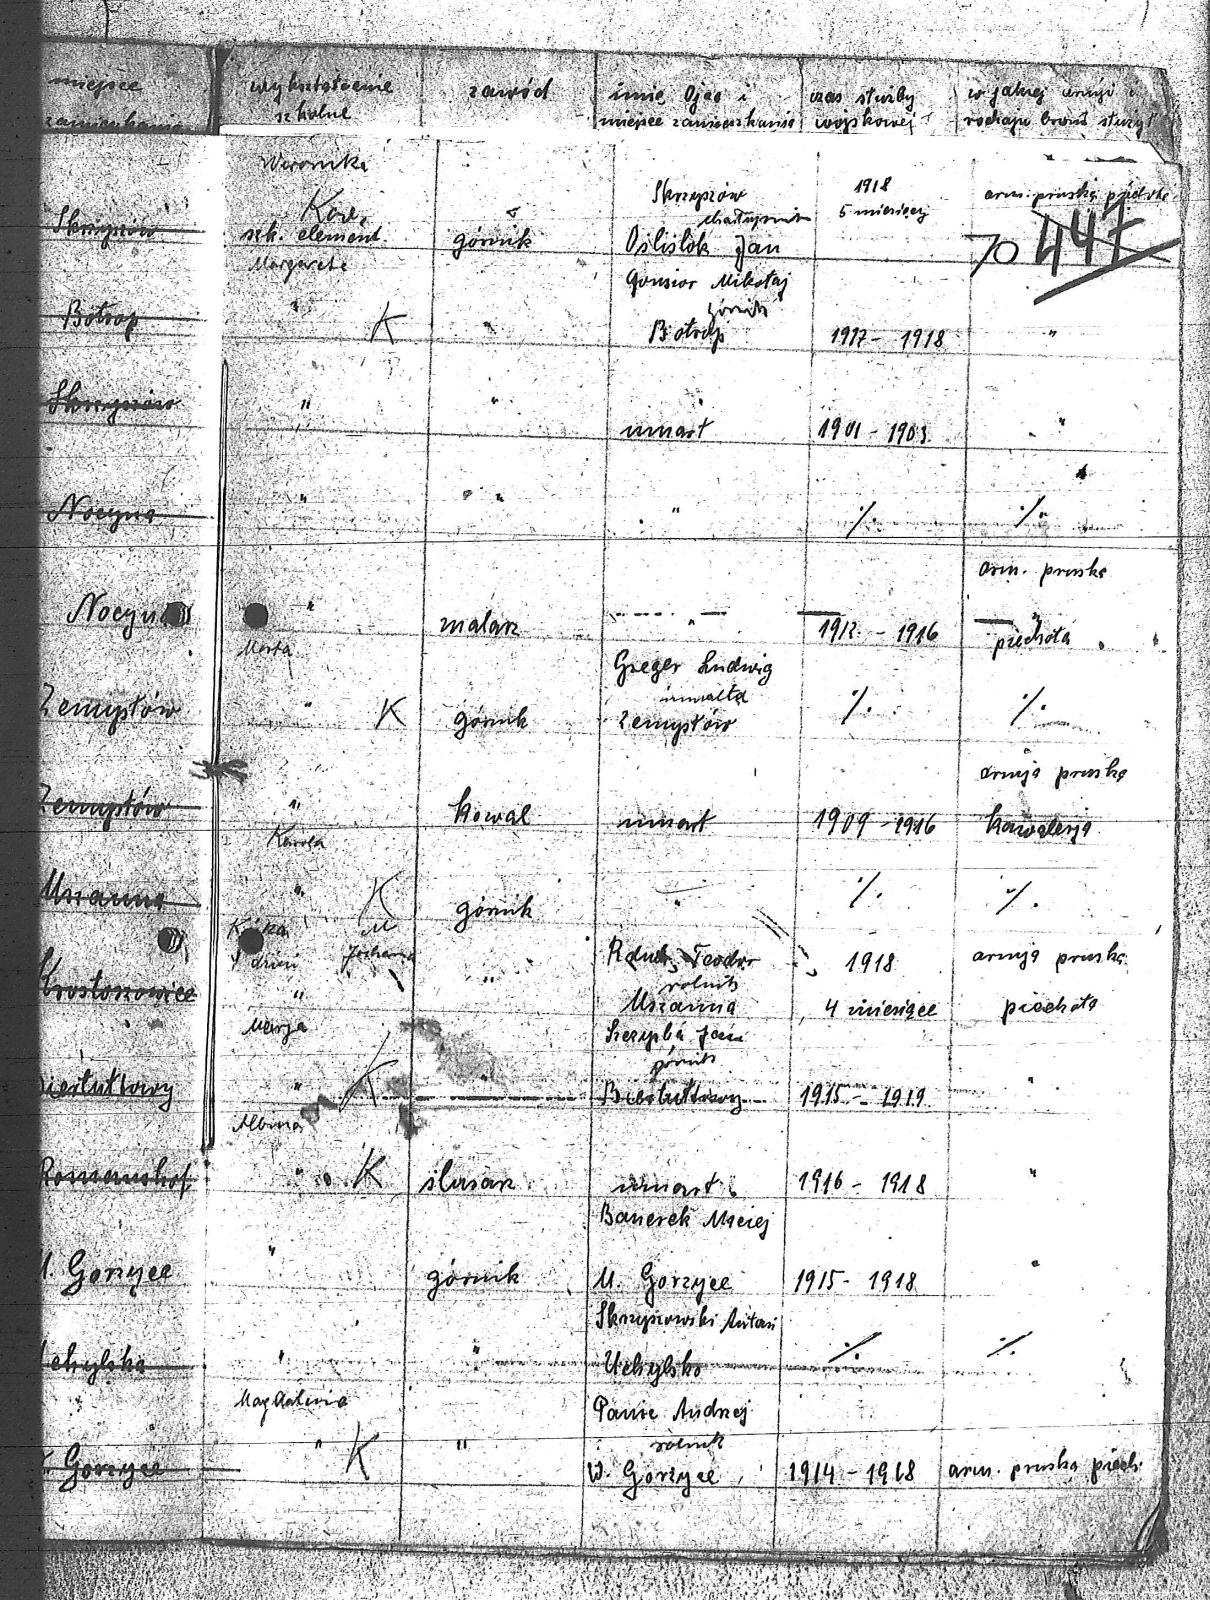 miejsce zamieszkania
wykształcenie szkolne
zawód
imię Ojca i miejsce zamieszkania
czas służby wojskowej
w jakiej armji i rodzaju broni służył
Weronika
Skrzyszów
1918
arm. pruska piechota
chałupnik
5 miesięcy
Skrzyszów
szk. element.
górnik
Ośliślok Jan
70 447
Margareta
Gonsior Mikołaj
górnik
Botrop
"
K
"
Botrop
1917 - 1918
"
Skrzyszów
"
"
umarł
1901 - 1903
"
Nocyna
"
"
"
·/.
·/.
arm. pruska
Nocyna
"
malarz
"
1912 - 1916
piechota
Marta
Gzeger Ludwig
Zemysłów
"
K
górnik
Zemysłów
·/.
·/.
armja pruska
Zemysłów
"
kowal
umarł
1909 - 1916
kawalerja
Karola
Uszanna
"
K
górnik
"
·/.
·/.
Teodor
1918
armja pruska
rolnik
Krostoszowice
"
"
Uszanna
4 miesiące
piechota
Marja
Szczypka Jan
górnik
"
K
"
1915 - 1919
"
Albina
Romanshof
"
K
ślusarz
umarł
1916 - 1918
"
Banerek Maciej
M. Gorzyce
"
górnik
M. Gorzyce
1915 - 1918
"
Skrzyszowski Antoni
Uchylsko
"
"
Uchylsko
·/.
·/.
Magdalena
Panic Andrzej
rolnik
Gorzyce
"
K
"
W. Gorzyce
1914 - 1918
arm. pruska piech.